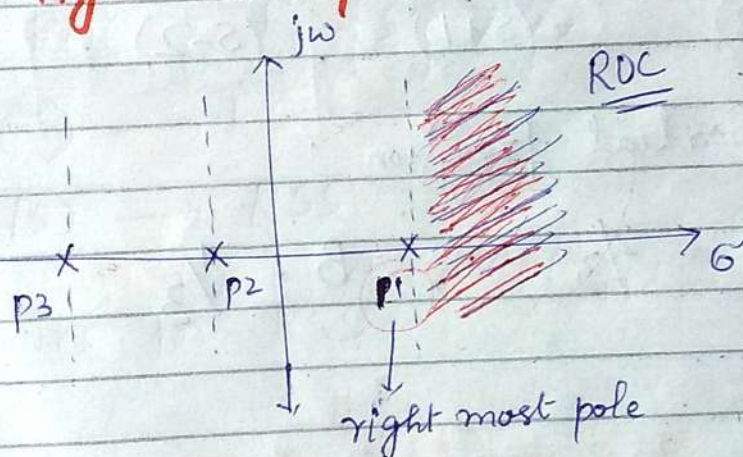 jω
ROC
σ
p3
p2
p1
right most pole